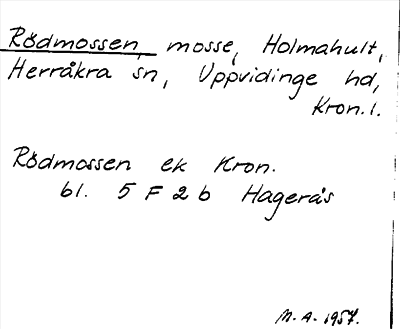 Rödmossen, mosse, Holmahult,
Herråkra sn, Uppvidinge hd,
Kron. l.
Rödmossen ek Kron.
bl. 5 F 2 b Hagerås
M. A. 1957.